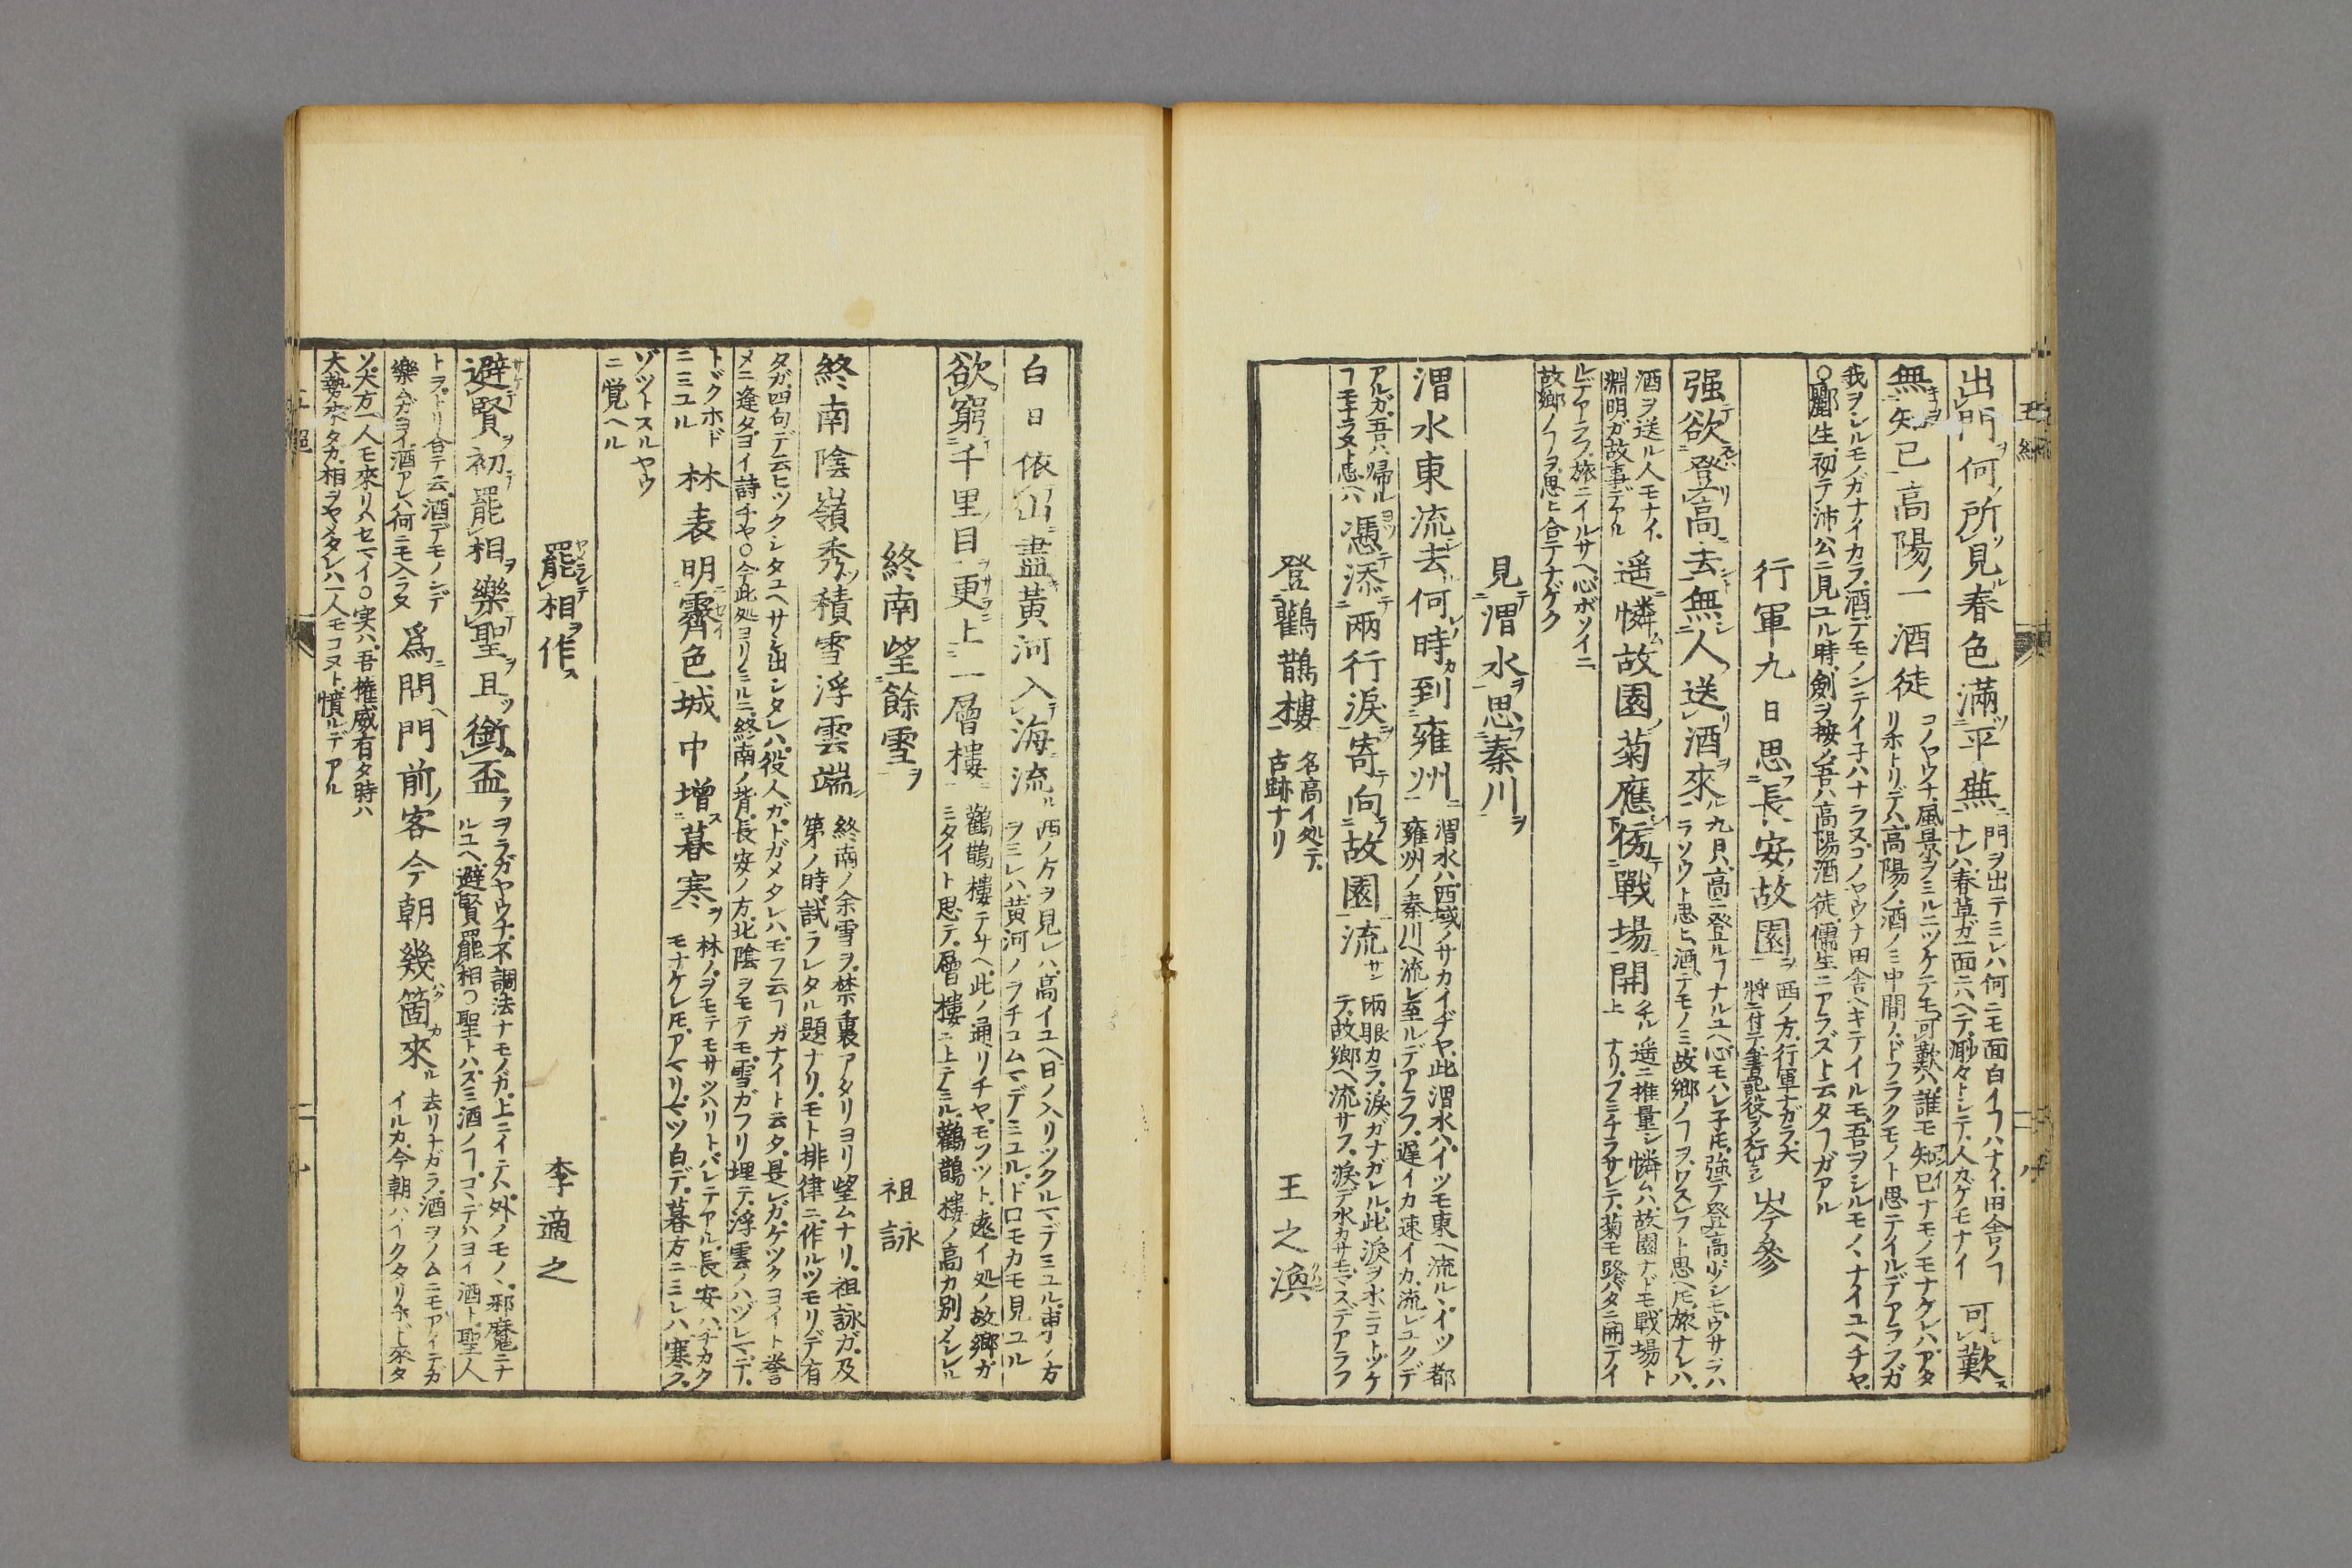 出門何所見春色滿平蕪
門ヲ出テミレハ何ニモ面白イヿハナイ田舎ノヿ
ナレハ春草ガ一面ニハヘテ渺々トシテ人カゲモナイ
可歎
無知己高陽一酒徒
コノヤウナ風景ヲミルニツケテモ可歎ハ誰モ知己ナモノモナケレハアタ
リホトリデハ高陽ノ酒ノミ中間ノドフラクモノト思テイルデアラフガ
我ヲシルモノガナイカラ酒デモノンテイ子ハナラヌコノヤウナ田舎ヘキテイルモ吾ヲシルモノヽナイユヘチヤ
○酈生初テ沛公ニ見ユル時劍ヲ按メ吾ハ高陽酒徒儒生ニアラズト云タヿガアル
行軍九日思長安故園
西ノ方行軍ナガラ大
將ニ付テ書記役ヲ行シ
岑參
强欲登高去無人送酒來
九月ハ高ニ登ルヿナルユヘ心モハレ子𪜈強テ登高少シモウサヲハ
ラソウト思ヒ酒デモノミ故鄉ノヿヲワスレフト思ヘ𪜈旅ナレハ
酒ヲ送ル人モナイ
淵明ガ故事デアル
遥憐故園菊應傍戰場開
遥ニ推量シ憐ムハ故園ナドモ戰場ト
ナリフミチラサレテ菊モ路バタニ開テイ
レデアラフ旅ニイルサヘ心ボソイニ
故鄉ノヿヲ思ヒ合テナゲク
見渭水思秦川
渭水東流去何時到雍州
渭水ハ西域ノサカイヂヤ此渭水ハイツモ東ヘ流ルヽイツ都
雍州ノ秦川ヘ流レ至ルデアラフ遅イカ速イカ流レユクデ
アルガ吾ハ帰ル
ヿモナラヌト思ヘハ
憑添兩行淚寄向故園流
両眼カラ淚ガナガレル此淚ヲ水ニコトヅケ
テ故鄉ヘ流サフ淚デ水カサモマスデアラフ
登鸛鵲樓
名高イ処デ
古跡ナリ
王之渙
白日依山盡黃河入海流
西ノケヲ見レハ高イユヘ日ノ入リツクルマデミユル東ノ方
ヲミレハ黄河ノヲチコムマデミユルドロモカモ見ユル
欲窮千里目更上一層樓
鸛鵲樓テサヘ此ノ通リチヤモツツト遠イ処ノ故鄉ガ
ミタイト思テ層樓ニ上テミル鸛鵲樓ノ高カ別メシレル
終南望餘雪
祖詠
終南陰嶺秀積雪浮雲端
終南ノ余雪ヲ禁裏アタリヨリ望ムナリ祖詠ガ及
第ノ時試ラレタル題ナリモト排律ニ作ルツモリデ有
タガ四句デ云ヒツクシタユヘサシ出シタレハ役人ガトガメタレハモフ云フガナイト云タ是レガケツクヨイト誉
メニ逢タヨイ詩チヤ○今此処ヨリミルニ終南ノ背長安ノ方北陰ヲモテモ雪ガフリ埋テ浮雲ノハヅレマデ
トヾクホド
ニミユル
林表明霽色城中增暮寒
林ノヲモテモサツハリトハレテアル長安ハチカク
モナケレ𪜈アマリマツ白デ暮方ニミレハ寒ク
ゾツトスルヤウ
ニ覚ヘル
罷相作
李適之
避賢初罷相樂聖且銜盃
ヲラガヤウナ不調法ナモノガ上ニイテハ外ノモノヽ邪魔ニナ
ルユヘ避賢罷相○聖トハスミ酒ノヿコヽデハヨイ酒ト聖人
トヲトリ合テ云酒デモノンデ
樂ムガヨイ酒アレハ何ニモ入ラヌ
爲問門前客今朝幾箇來
去リナガラ酒ヲノムニモアイテガ
イルカ今朝ハイクタリホド來タ
ソ大方一人モ來リハセマイ○実ハ吾権威有タ時ハ
大勢來タカ相ヲヤメタレハ一人モコヌト憤ルデアル